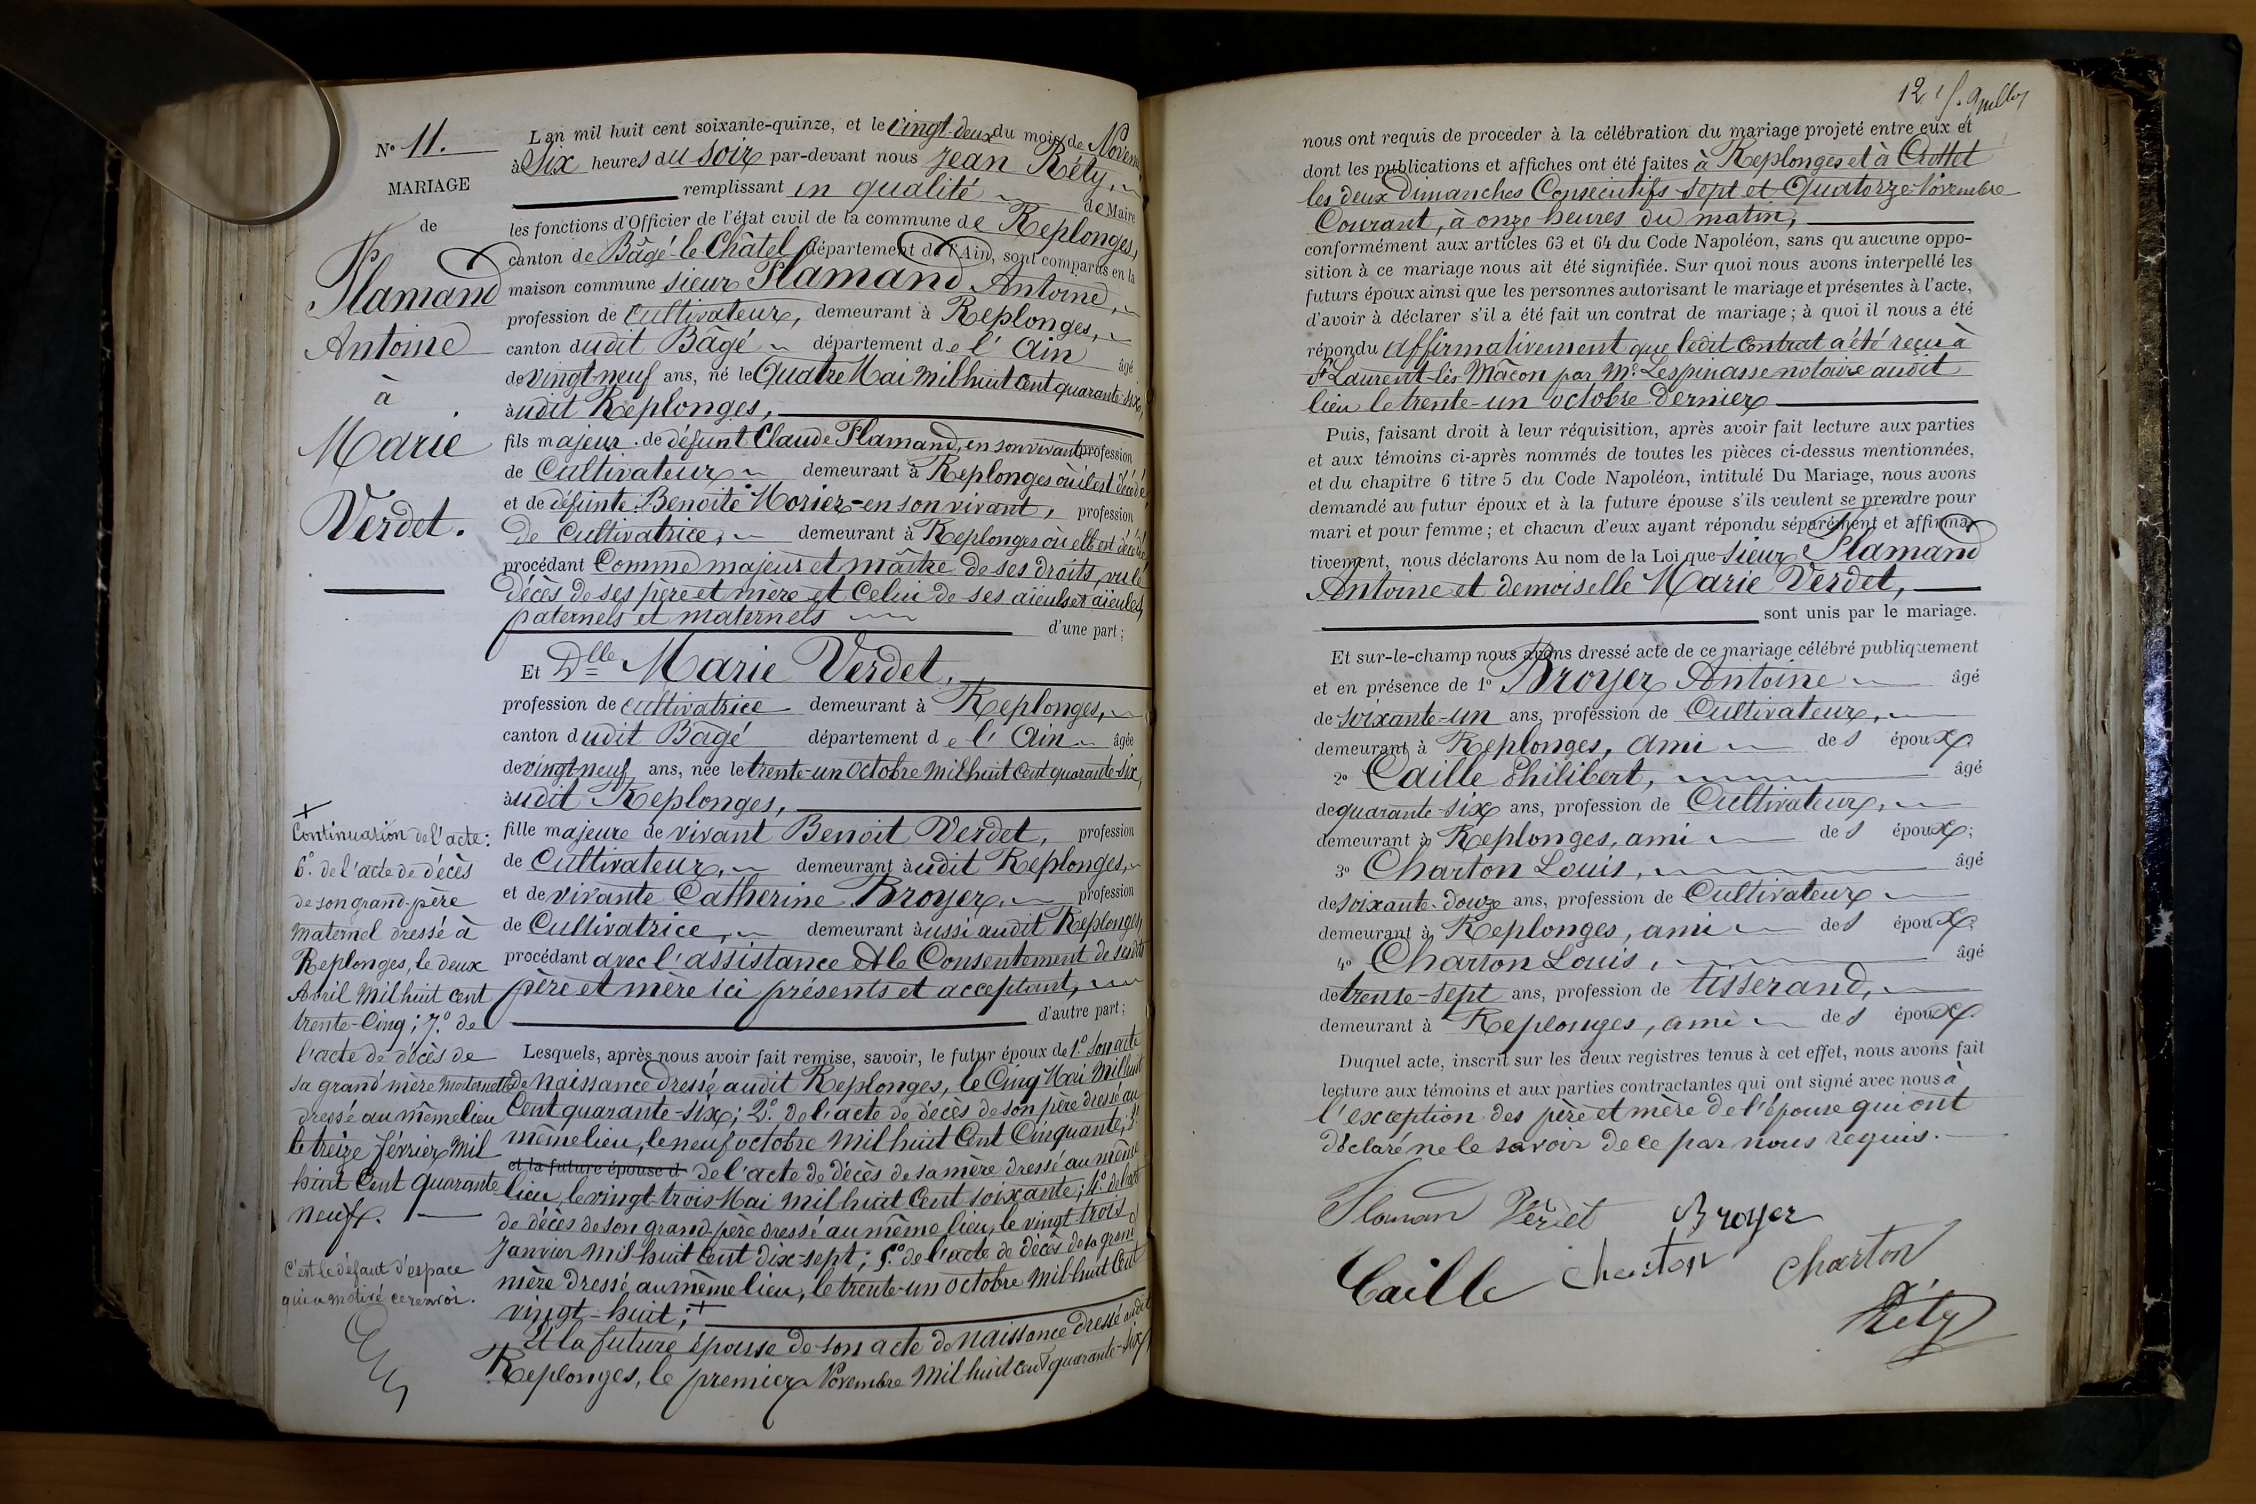 N° 11.
MARIAGE
de
Flamand
Antoine
à
Marie
Verdet.
L'an mil huit cent soixante-quinze, et le Vingt-deux du mois de Novem
à Six heures du soir par-devant nous Jean Réty,
remplissant en qualité de Maire
les fonctions d'Officier de l'état civil de la commune de Replonges,
canton de Bâgé-le-Châtel, département de l'Ain, sont comparus en la
maison commune sieur Flamand Antoine,
profession de Cultivateur, demeurant à Replonges,
canton dudit Bâgé département de l'Ain âgé
de vingt-neuf ans, né le Quatre Mai mil huit cent quarante-six,
audit Replonges,
fils majeur de défunt Claude Flamand, en son vivant profession
de Cultivateur demeurant à Replonges où il est décédé
et de défunte Benoîte Morier en son vivant, profession
de Cultivatrice, demeurant à Replonges où elle est décédée
procédant Comme majeur et maître de ses droits, vu le
décès de ses père et mère et Celui de ses aieuls et aieules
paternels et maternels
d'une part;
Et Dlle Marie Verdet,
profession de cultivatrice demeurant à Replonges,
canton dudit Bâgé département de l'Ain âgée
de vingt-neuf ans, née le trente-un Octobre mil huit cent quarante-six,
audit Replonges,
fille majeure de vivant Benoit Verdet, profession
de Cultivateur, demeurant audit Replonges,
et de vivante Catherine Broyer, profession
de Cultivatrice, demeurant aussi audit Replonges,
procédant avec l'assistance et le Consentement de sesdits
père et mère ici présents et acceptant,
d'autre part;
Lesquels, après nous avoir fait remise, savoir, le futur époux de 1° son acte
de naissance dressé audit Replonges, le Cinq Mai mil huit
Cent quarante-six; 2° de l'acte de décès de son père dressé au
même lieu, le neuf octobre mil huit Cent Cinquante, 3°
et la future épouse d de l'acte de décès de sa mère dressé au même
lieu, le vingt-trois Mai mil huit Cent soixante; 4° de l'acte
de décès de son grand-père dressé au même lieu, le vingt trois
Janvier mil huit Cent dix-sept; 5° de l'acte de décès de sa grand
mère dressé au même lieu, le trente-un octobre mil huit Cent
vingt-huit; +
Et la future épouse de son acte de naissance dressé audit
Replonges, le premier Novembre mil huit cent quarante-six,
+
Continuation de l'acte:
6° de l'acte de décès
de son grand-père
Maternel dressé à
Replonges, le deux
Avril mil huit cent
trente-Cinq; 7° de
l'acte de décès de
sa grand'mère maternelle
dressé au même lieu
le treize février mil
huit Cent quarante
neuf.
C'est le défaut d'espace
qui a motivé ce renvoi.
12
nous ont requis de procéder à la célébration du mariage projeté entre eux et
dont les publications et affiches ont été faites à Replonges et à Crottet
les deux Dimanches Consécutifs sept et Quatorze Novembre
Courant, à onze heures du matin,
conformément aux articles 63 et 64 du Code Napoléon, sans qu'aucune oppo-
sition à ce mariage nous ait été signifiée. Sur quoi nous avons interpellé les
futurs époux ainsi que les personnes autorisant le mariage et présentes à l'acte,
d'avoir à déclarer s'il a été fait un contrat de mariage; à quoi il nous a été
répondu affirmativement que ledit Contrat a été reçu à
St Laurent-lès-Mâcon par Me Lespinasse notaire audit
lieu le trente-un octobre dernier
Puis, faisant droit à leur réquisition, après avoir fait lecture aux parties
et aux témoins ci-après nommés de toutes les pièces ci-dessus mentionnées,
et du chapitre 6 titre 5 du Code Napoléon, intitulé Du Mariage, nous avons
demandé au futur époux et à la future épouse s'ils veulent se prendre pour
mari et pour femme; et chacun d'eux ayant répondu séparément et affirma-
tivement, nous déclarons Au nom de la Loi que sieur Flamand
Antoine et demoiselle Marie Verdet,
sont unis par le mariage.
Et sur-le-champ nous avons dressé acte de ce mariage célébré publiquement
et en présence de 1° Broyer Antoine âgé
de soixante-un ans, profession de Cultivateur,
demeurant à Replonges, ami des époux
2° Caille Philibert, âgé
de quarante-six ans, profession de Cultivateur,
demeurant à Replonges, ami des époux;
3° Charton Louis, âgé
de soixante-douze ans, profession de Cultivateur
demeurant à Replonges, ami des époux;
4° Charton Louis, âgé
de trente-sept ans, profession de tisserand,
demeurant à Replonges, ami des époux.
Duquel acte, inscrit sur les deux registres tenus à cet effet, nous avons fait
lecture aux témoins et aux parties contractantes qui ont signé avec nous à
l'exception des père et mère de l'épouse qui ont
déclaré ne le savoir de ce par nous requis.
Flaman Verdet Broyer
Caille Charton Charton
Réty